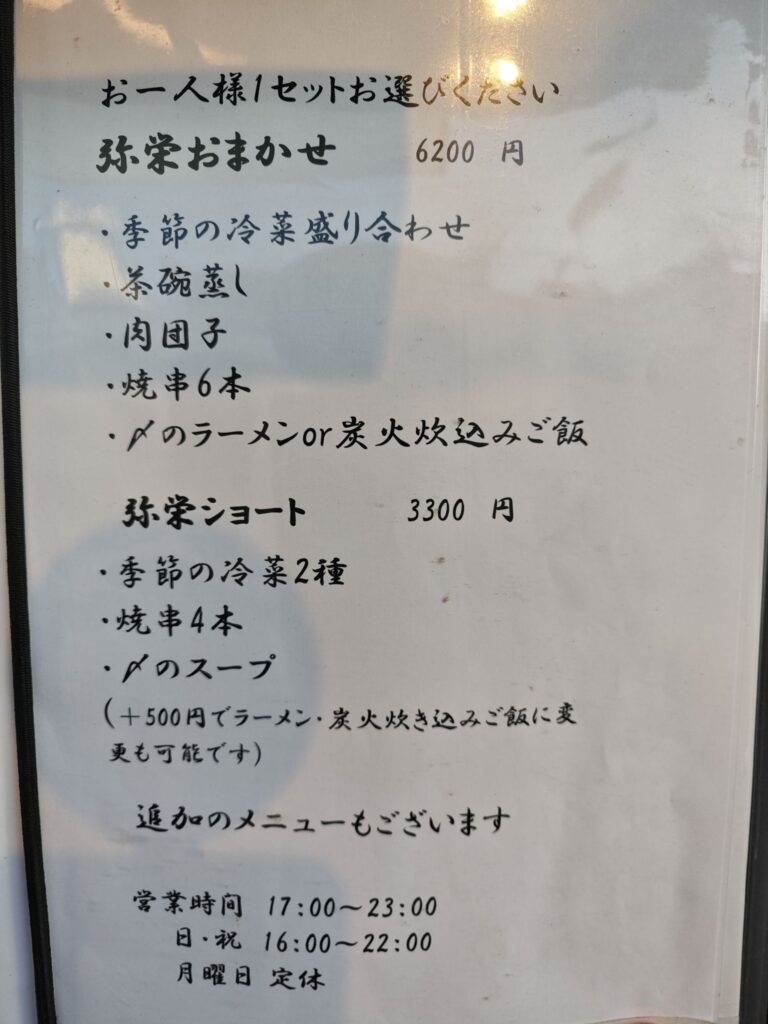 お一人様1セットお選びください
弥栄おまかせ 6200 円
・季節の冷菜盛り合わせ
・茶碗蒸し
・肉団子
・焼串6本
・〆のラーメンor炭火炊込みご飯
弥栄ショート 3300 円
・季節の冷菜2種
・焼串4本
・〆のスープ
(＋500円でラーメン・炭火炊き込みご飯に変
更も可能です)
追加のメニューもございます
営業時間 17:00～23:00
日・祝 16:00～22:00
月曜日 定休